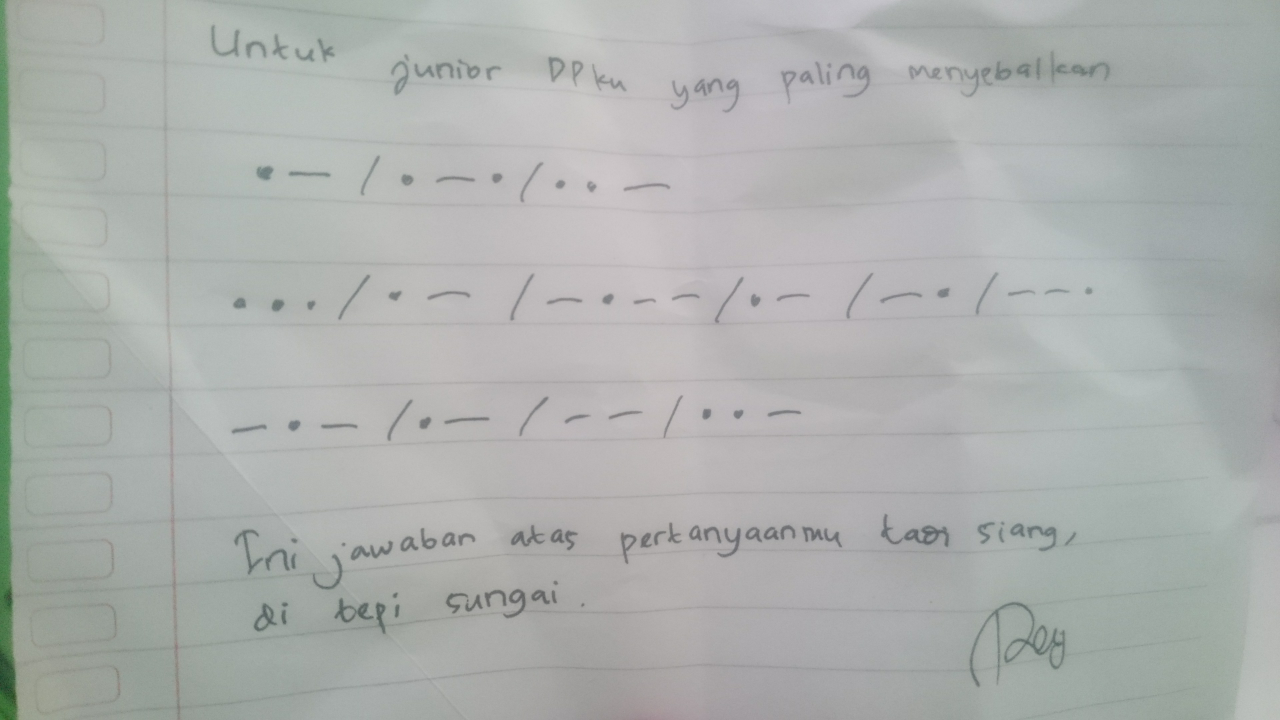 Untuk junior DPku yang paling menyebalkan
•— / •—• / ••—
••• / •— / —•—— / •— / —• / ——•
—•— / •— / —— / ••—
Ini jawaban atas pertanyaanmu siang,
di tepi sungai.
Rey